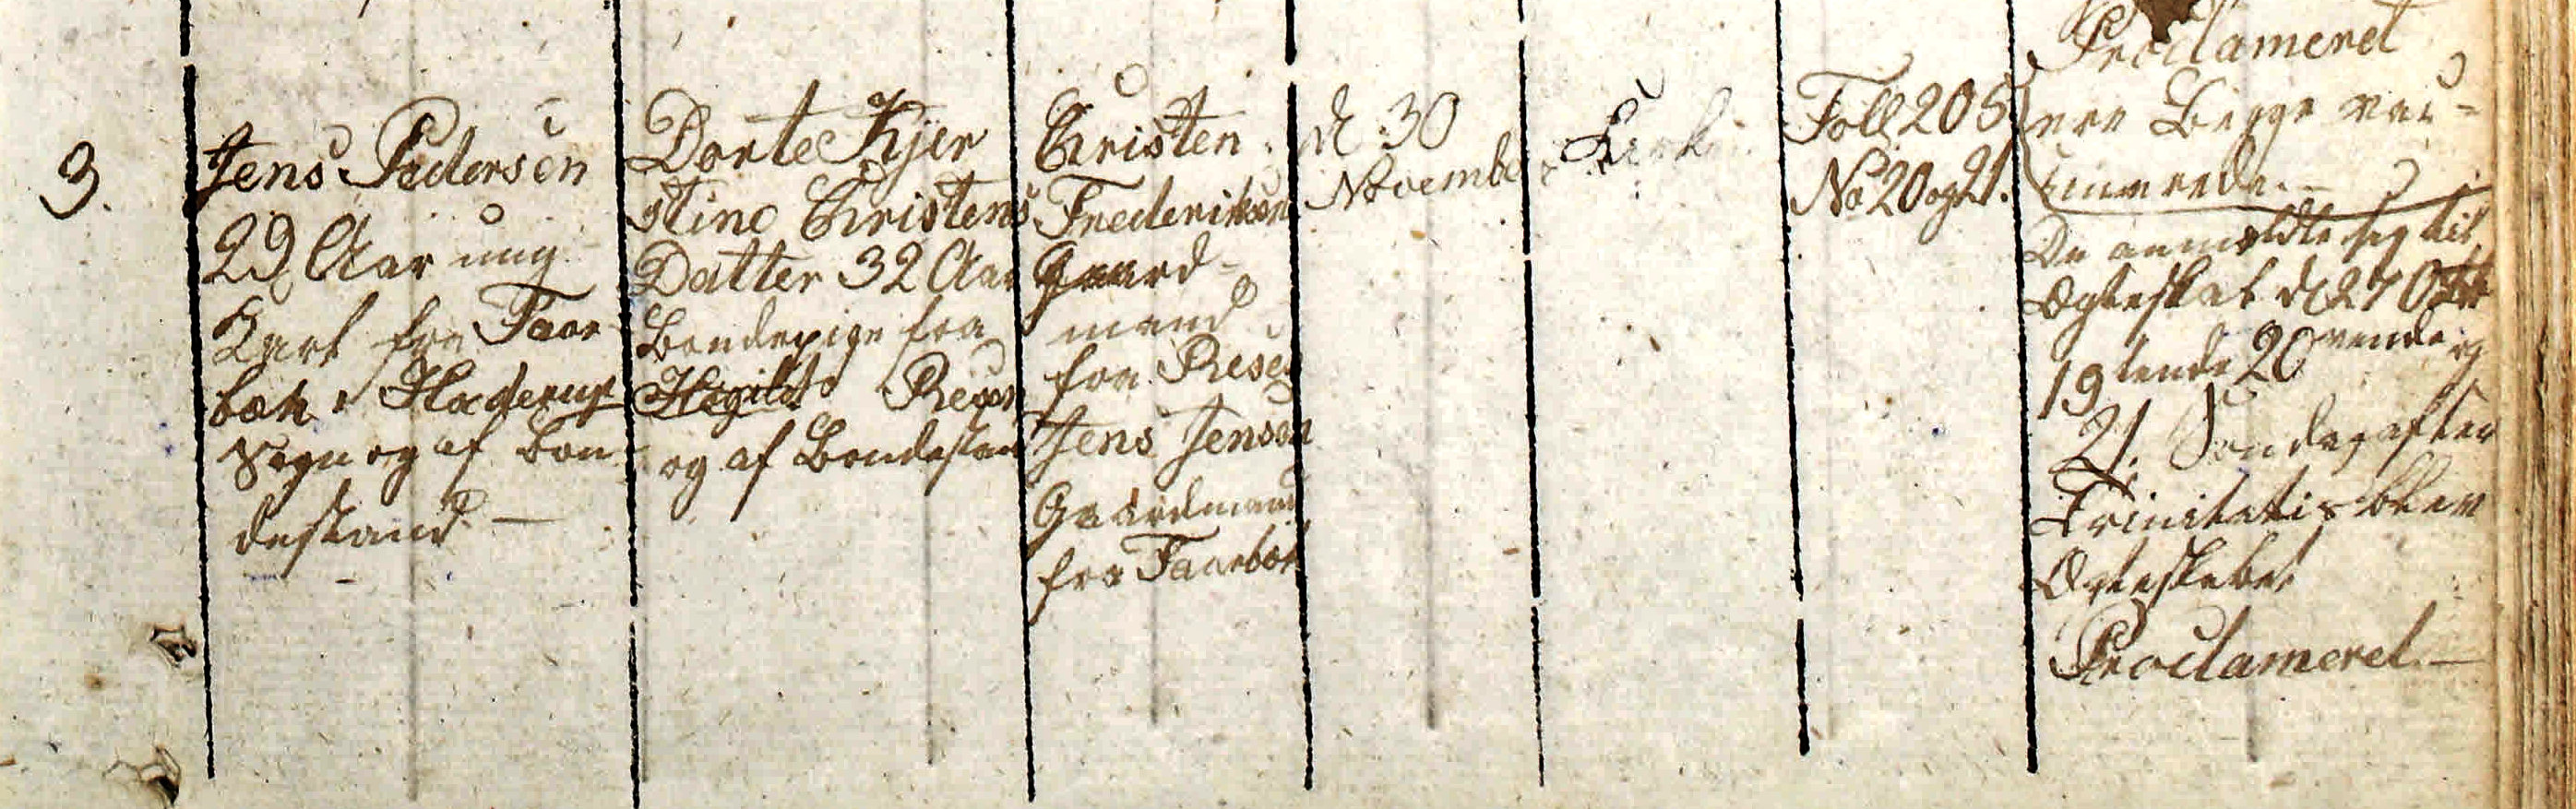 3.
Jens Pedersen
29 Aar ung
Karl fra Faar
bæk i Haderup
Sogn og af Bon
destand —
Dorte Kjer
stine Christens
Datter 32 Aar
Bondepige fra
Hogild Resen
og af Bondestan
Christen
Frederiksen
Gaard-
mand
fra Resen
Jens Jensen
Gaardmand
fra Faarbæk
d: 30
November
Kirk
Foll 205
No 20 og 21.
Proclameret
ere Begge vac-
cinerede. —
De anmeldte sig til
Ægteskab d 27 Oct
19 tende 20 vende og
21. Søndag efter
Trinitatis blev
Ægteskabet
Proclameret —